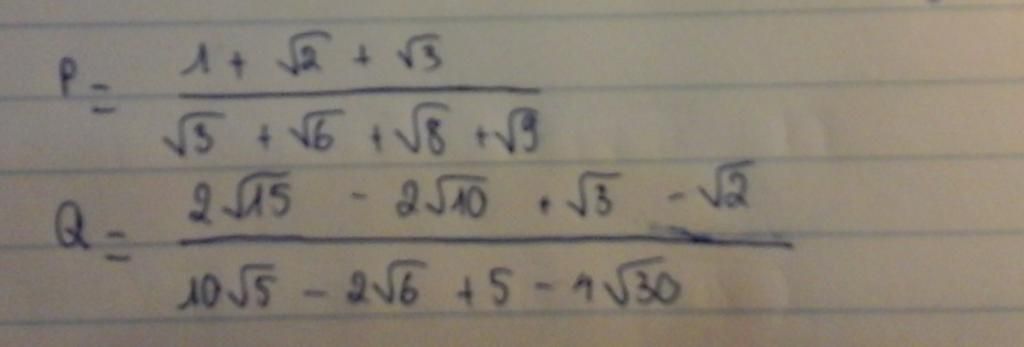 P = \frac{1 + \sqrt{2} + \sqrt{3}}{\sqrt{3} + \sqrt{6} + \sqrt{8} + \sqrt{9}}
Q = \frac{2\sqrt{15} - 2\sqrt{10} + \sqrt{3} - \sqrt{2}}{10\sqrt{5} - 2\sqrt{6} + 5 - 4\sqrt{30}}